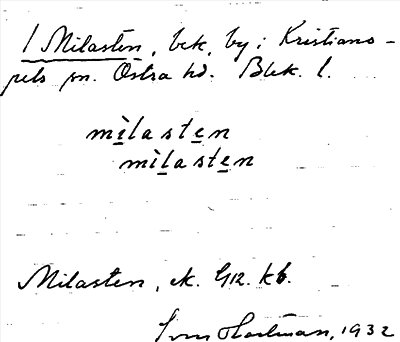 1 Milasten, bek. by i Kristiano-
pels sn. Östra hd. Blek. l.
mìlasten
mìlasten
Milasten, ek. G12. kb.
Sven Hartman, 1932